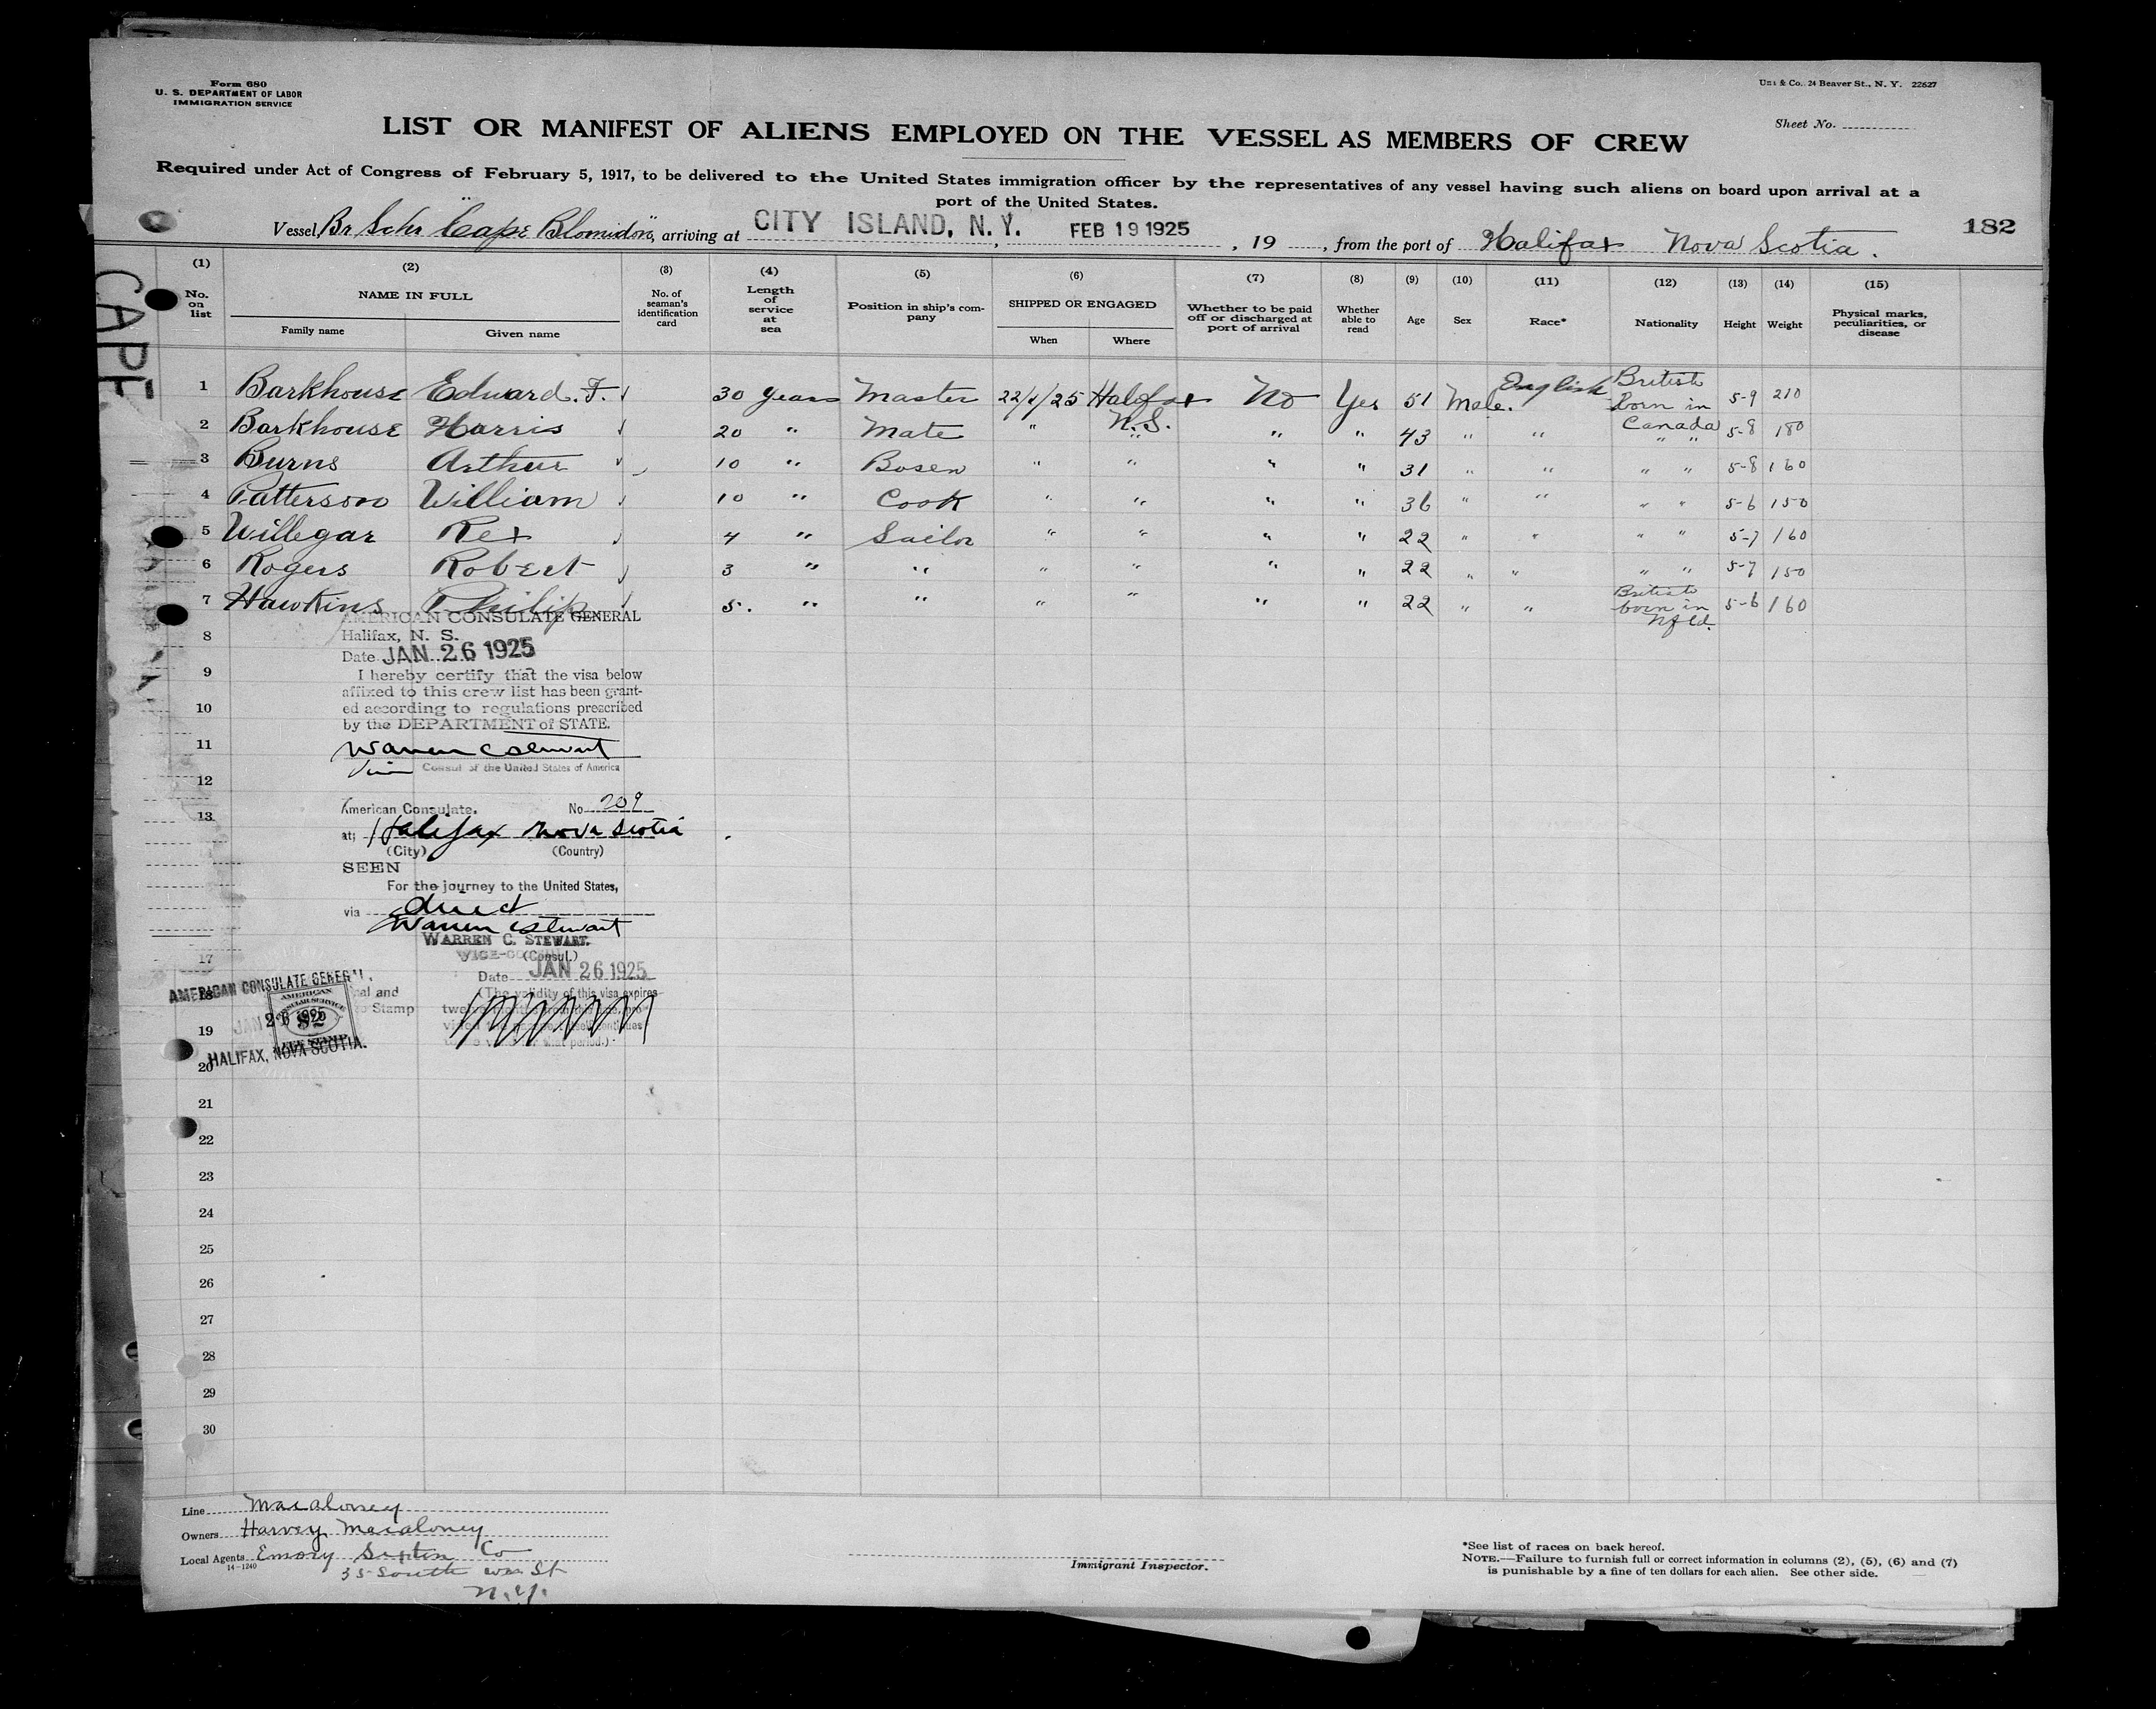 Form 680
U. S. DEPARTMENT OF LABOR
IMMIGRATION SERVICE
& Co., 24 Beaver St., N. Y. 22627
Sheet No.
LIST OR MANIFEST OF ALIENS EMPLOYED ON THE VESSEL AS MEMBERS OF CREW
Required under Act of Congress of February 5, 1917, to be delivered to the United States immigration officer by the representatives of any vessel having such aliens on board upon arrival at a
port of the United States.
Vessel Br Schr "Cape Blomidon", arriving at CITY ISLAND, N. Y. FEB 19 1925, 19 , from the port of Halifax Nova Scotia.
182
CAPE
(1) (2) (3) (4) (5) (6) (7) (8) (9) (10) (11) (12) (13) (14) (15)
No. on list
NAME IN FULL
Family name Given name
No. of seaman's identification card
Length of service at sea
Position in ship's company
SHIPPED OR ENGAGED
When Where
Whether to be paid off or discharged at port of arrival
Whether able to read
Age
Sex
Race*
Nationality
Height
Weight
Physical marks, peculiarities, or disease
1 Barkhouse Edward. F. 30 years Master 22/1/25 Halifax N.S. No Yes 51 Male. English British born in Canada 5-9 210
2 Barkhouse Harris 20 " Mate " " " " 43 " " " " 5-8 180
3 Burns Arthur 10 " Bosen " " " " 31 " " " " 5-8 160
4 Patterson William 10 " Cook " " " " 36 " " " " 5-6 150
5 Willegar Rex 4 " Sailor " " " " 22 " " " " 5-7 160
6 Rogers Robert 3 " " " " " " 22 " " " " 5-7 150
7 Hawkins Philip 5. " " " " " " 22 " " British born in Nfld. 5-6 160
AMERICAN CONSULATE GENERAL
8
Halifax, N. S.
Date JAN 26 1925
9
I hereby certify that the visa below
affixed to this crew list has been grant-
10
ed according to regulations prescribed
by the DEPARTMENT of STATE.
11
Warren C Stewart
Vice Consul of the United States of America
12
American Consulate. No 209
13
at; Halifax Nova Scotia
(City) (Country)
SEEN
For the journey to the United States,
via direct
Warren C Stewart
WARREN C. STEWART.
VICE-CO (Consul.)
17
Date JAN 26 1925
AMERICAN CONSULATE GENERAL
18
(The validity of this visa expires
Stamp
JAN 26 1925
AMERICAN
CONSULAR SERVICE
$2
19
HALIFAX, NOVA SCOTIA.
20
21
22
23
24
25
26
27
28
29
30
Line Macaloney
Owners Harvey Macaloney
Local Agents Emory Co
14-1240
35 South St
N.Y.
Immigrant Inspector.
*See list of races on back hereof.
NOTE.—Failure to furnish full or correct information in columns (2), (5), (6) and (7)
is punishable by a fine of ten dollars for each alien. See other side.